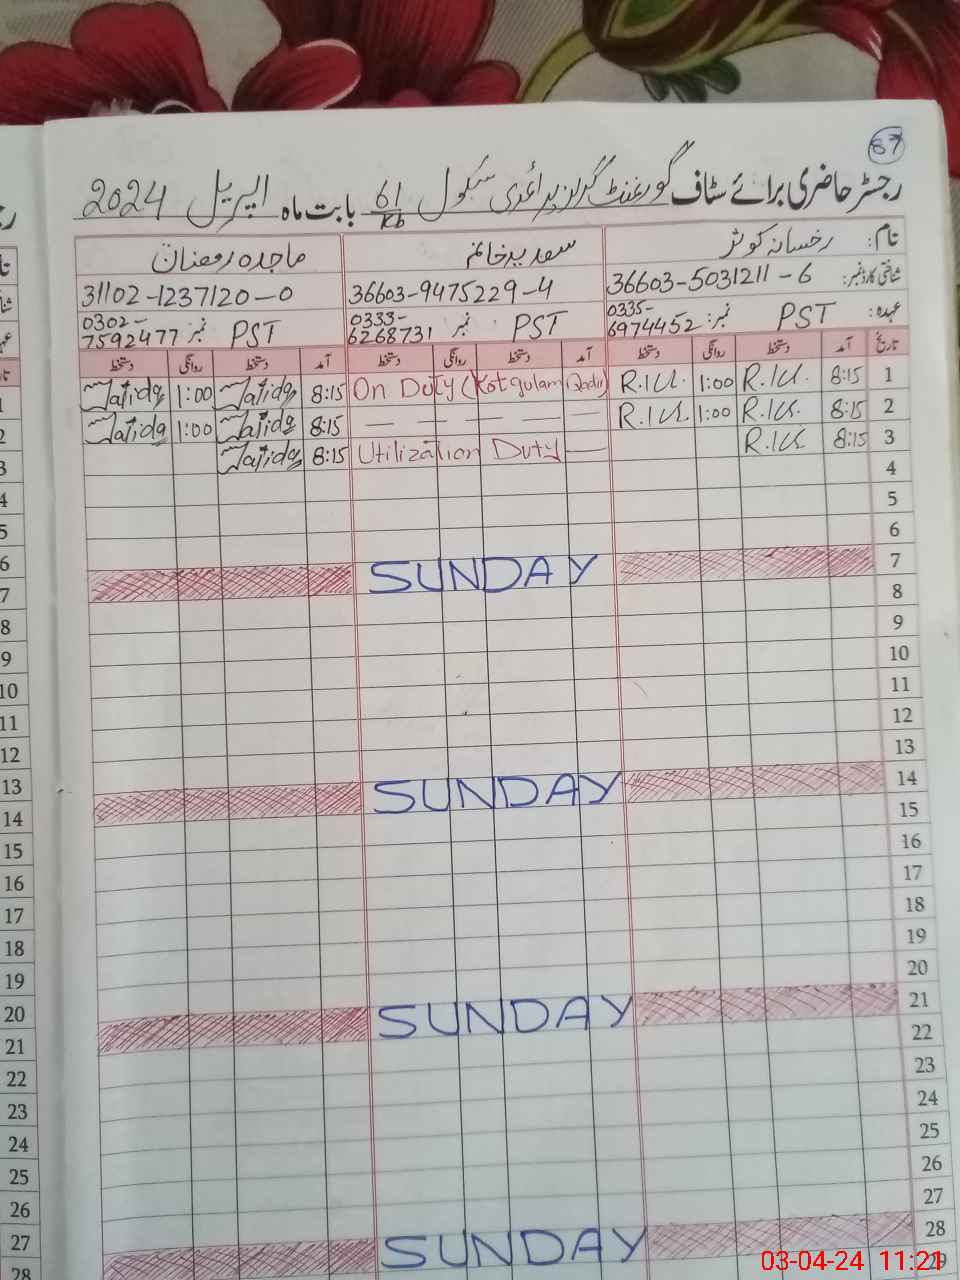 87
رجسٹر حاضری برائے سٹاف گورنمنٹ گرلز پرائمری سکول 61/KB بابت ماہ اپریل 2024
نام: رخسانہ کوثر
شناختی کارڈ نمبر: 36603-5031211-6
عہدہ: PST نمبر: 0335-6974452
سعدیہ خانم
36603-9475229-4
PST نمبر 0333-6268731
ماجدہ رمضان
31102-1237120-0
PST نمبر 0302-7592477
تاریخ آمد دستخط روانگی دستخط آمد دستخط روانگی دستخط آمد دستخط روانگی دستخط
1 8:15 R.K. 1:00 R.K. On Duty (Kotgulam Qadir) 8:15 Majida 1:00 Majida
2 8:15 R.K. 1:00 R.K. — — — — — 8:15 Majida 1:00 Majida
3 8:15 R.K Utilization Duty — 8:15 Majida
4
5
6
7 SUNDAY
8
9
10
11
12
13
14 SUNDAY
15
16
17
18
19
20
21 SUNDAY
22
23
24
25
26
27
28 SUNDAY
29
1
2
3
4
5
6
7
8
9
10
11
12
13
14
15
16
17
18
19
20
21
22
23
24
25
26
27
28
03-04-24 11:21